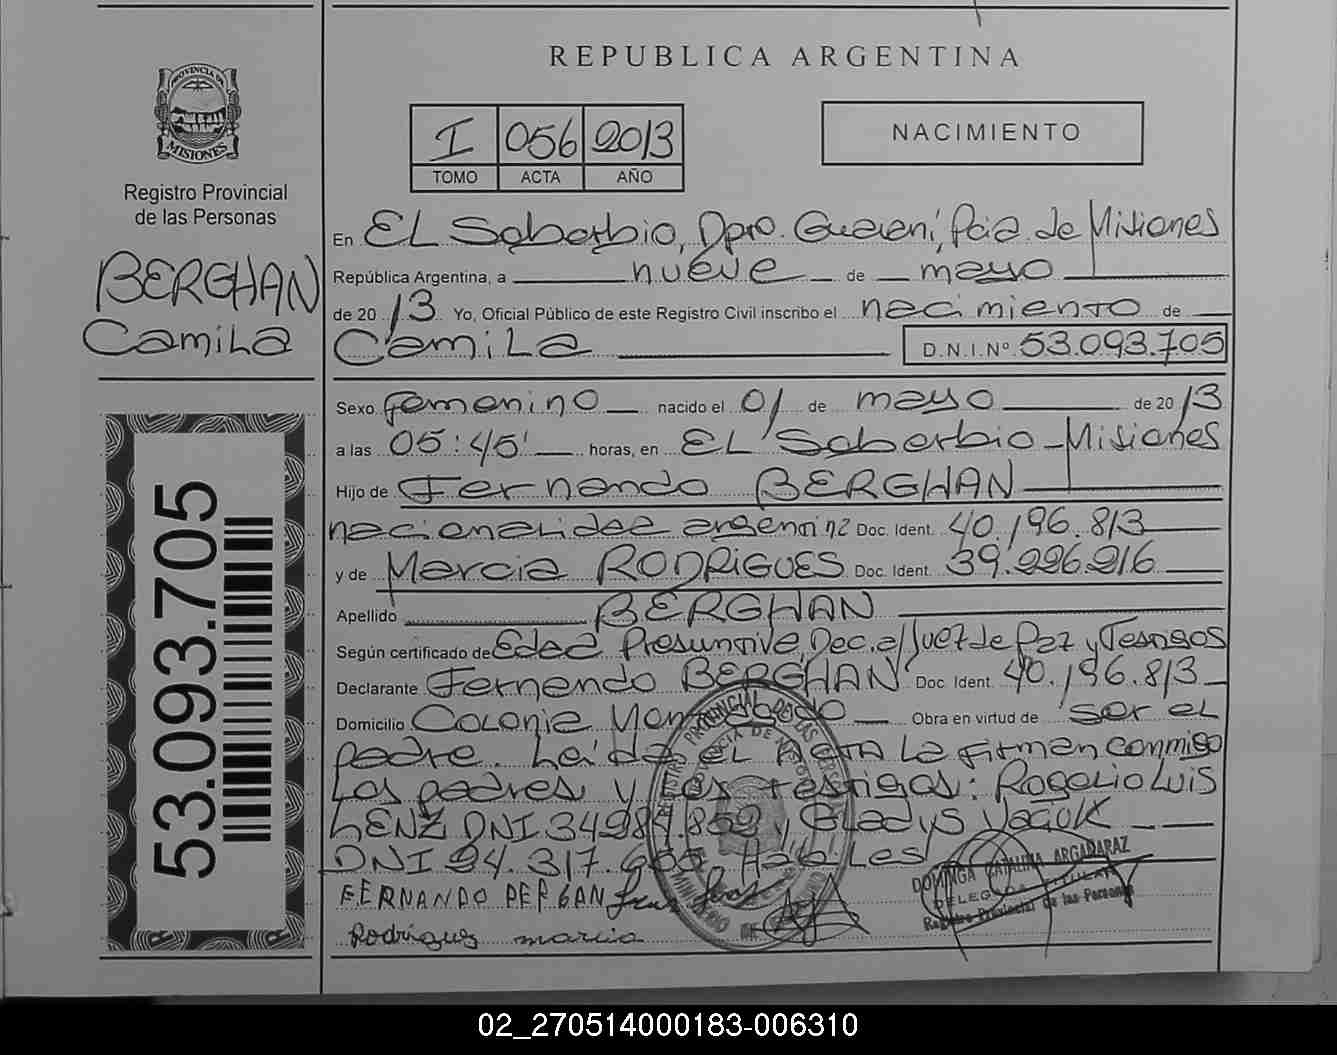 REPUBLICA ARGENTINA
PROVINCIA DE
MISIONES
Registro Provincial
de las Personas
I 056 2013
TOMO ACTA AÑO
NACIMIENTO
BERGHAN
Camila
En EL Soberbio, Dpto. Guaraní, Pcia. de Misiones
República Argentina, a nueve de mayo
de 2013 Yo, Oficial Público de este Registro Civil inscribo el nacimiento de
Camila D.N.I.Nº 53.093.705
Sexo femenino nacido el 01 de mayo de 2013
a las 05:45' horas, en EL Soberbio - Misiones
Hijo de Fernando BERGHAN
nacionalidad argentina Doc. Ident. 40.196.813
y de Marcia RODRIGUES Doc. Ident. 39.226.216
Apellido BERGHAN
Según certificado de Edad Presuntiva, Dec. a/Juez de Paz y Testigos
Declarante Fernando BERGHAN Doc. Ident. 40.196.813
Domicilio Colonia Obra en virtud de ser el
padre. Leída EL Acta La firman conmigo
Los padres y Los testigos: Rogelio Luis
LENZ DNI y Gladys
DNI Hábiles
FERNANDO BERGAN
Rodrigues marcia
DOMINGA CATALINA ARGAÑARAZ
DELEGADA TITULAR
Registro Provincial de las Personas
53.093.705
02_270514000183-006310